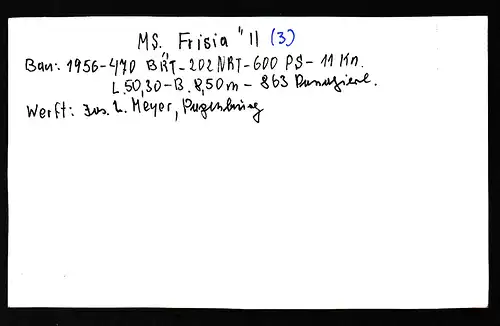 MS. Frisia "II (3)
Bau: 1956-470 BRT-202NRT-600 PS-11 Kn.
L.50,30-B.8,50m-863 Passagiere.
Werft: Jos. L. Meyer, Papenburg